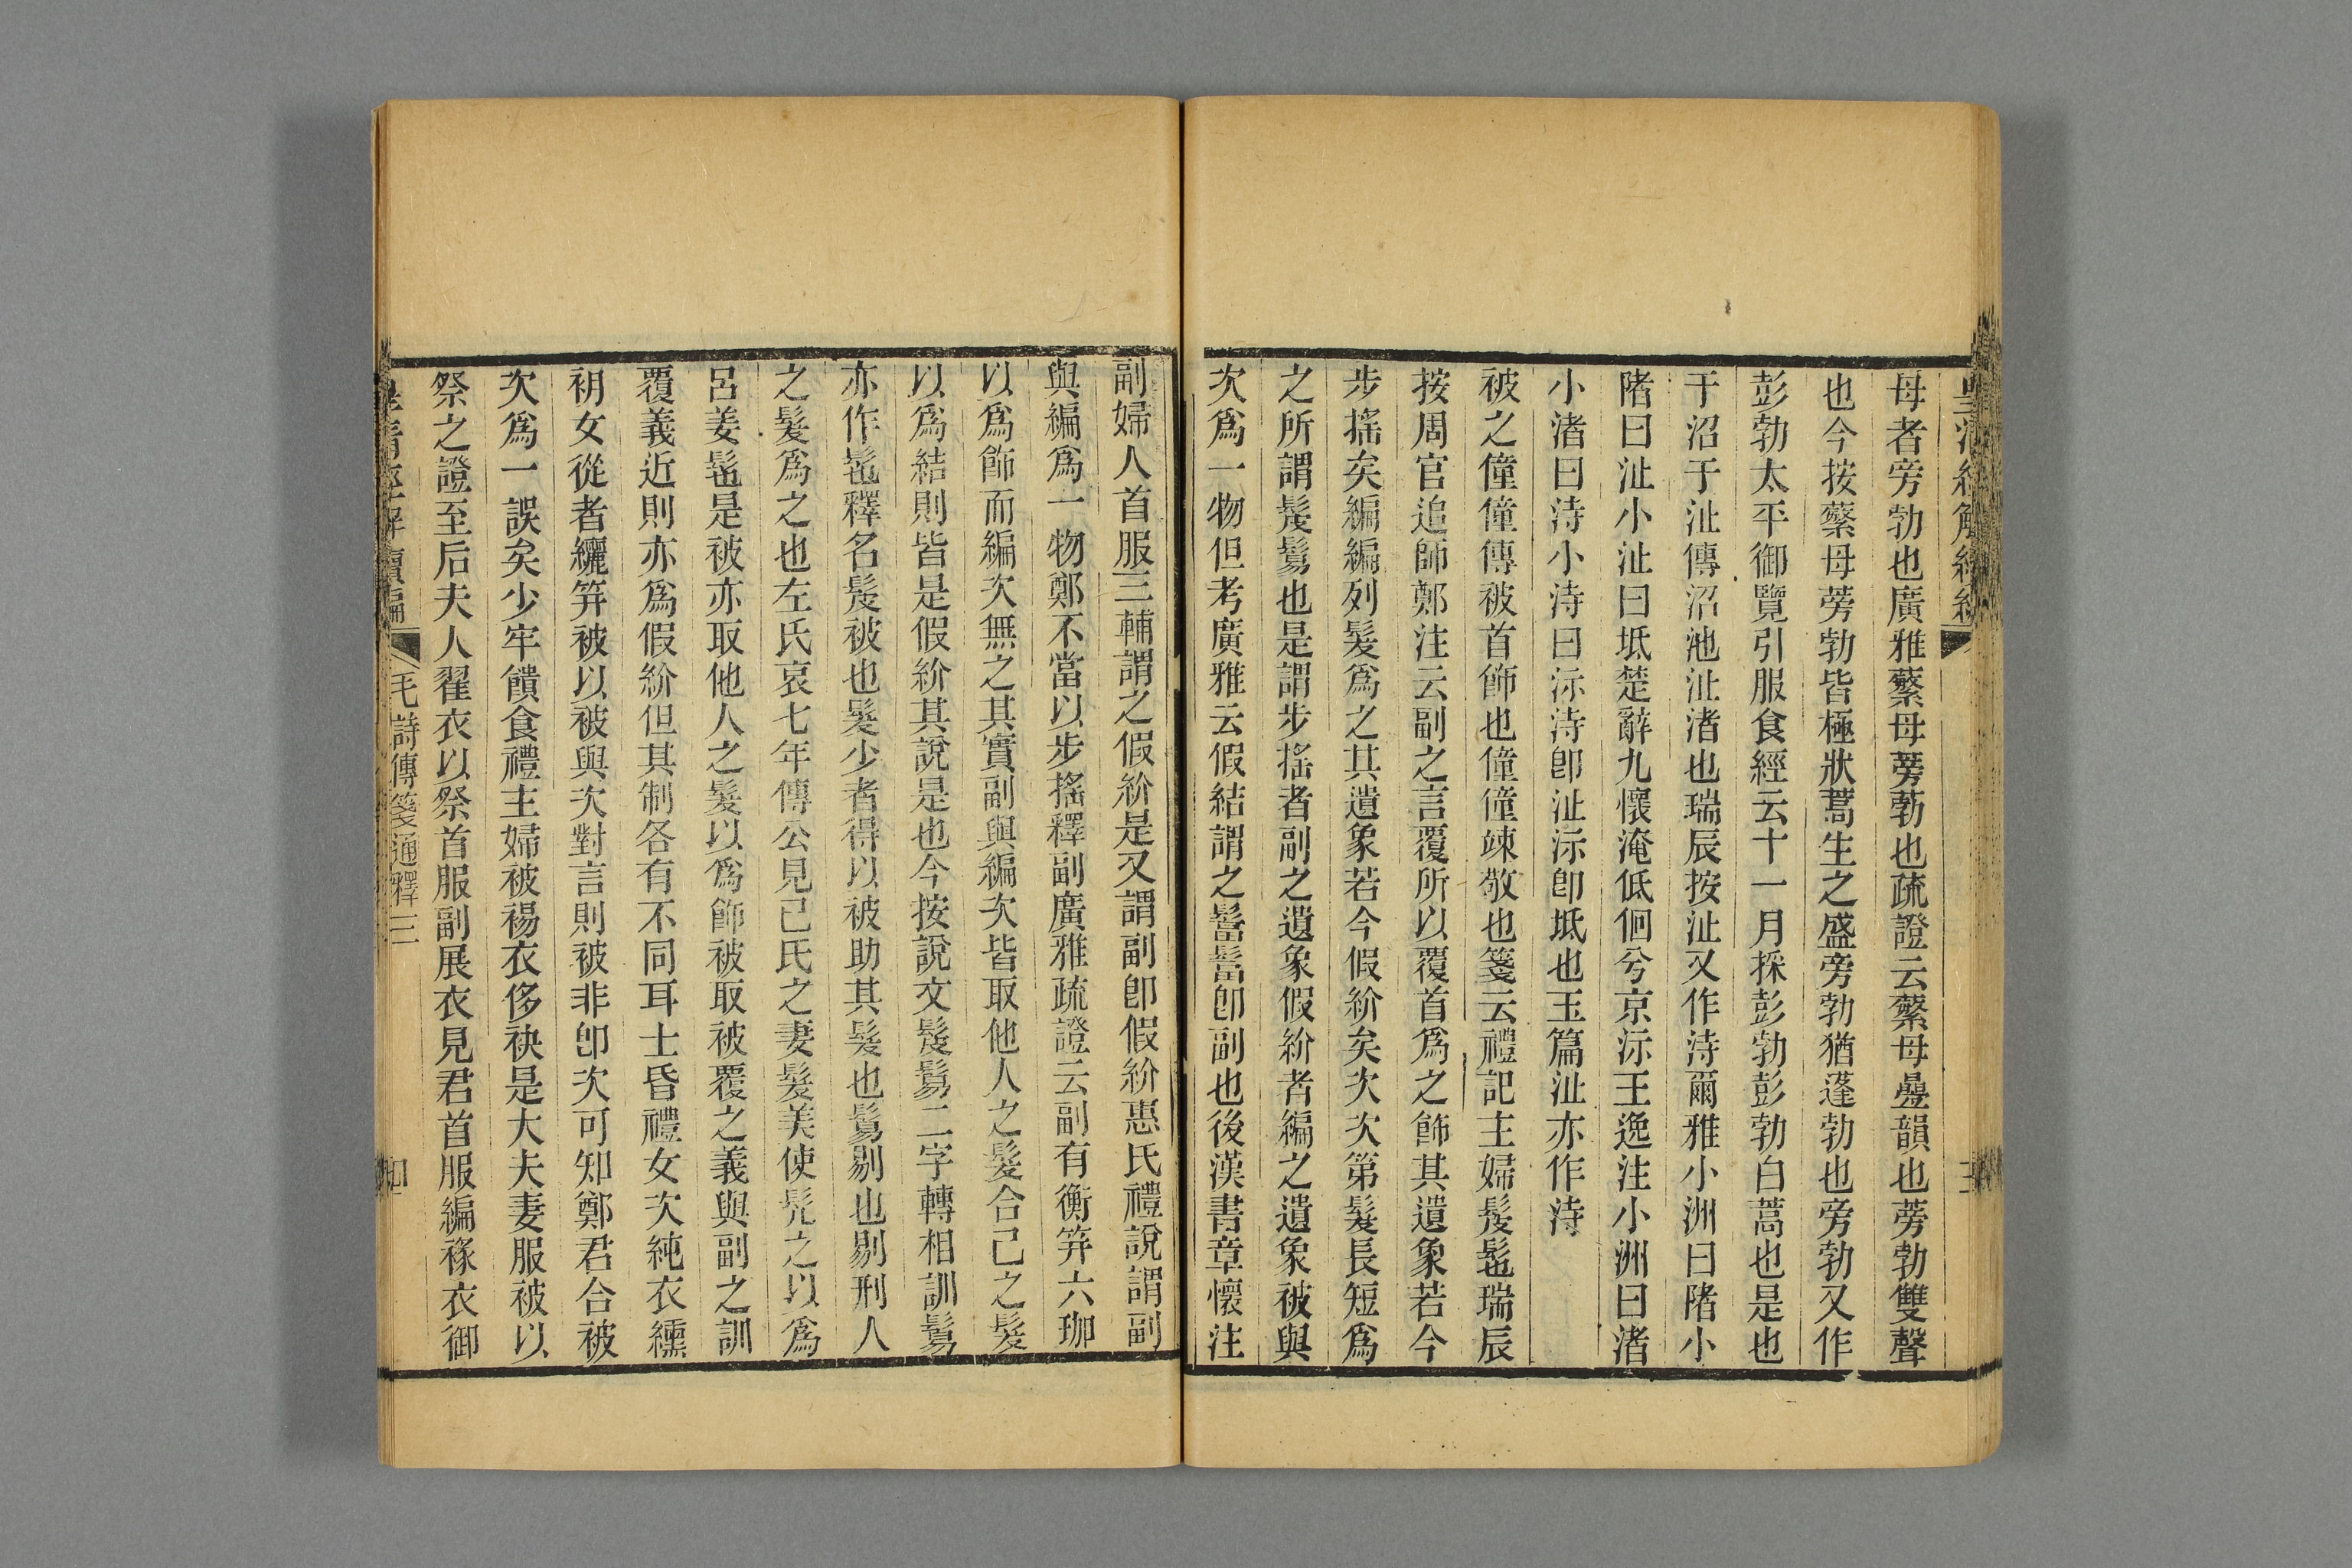 母者旁勃也廣雅蘩母蒡葧也疏證云蘩母疊韻也蒡勃雙聲
也今按蘩母蒡勃皆極狀蒿生之盛旁勃猶蓬勃也旁勃又作
彭勃太平御覽引服食經云十一月採彭勃彭勃白蒿也是也
于沼于沚傳沼池沚渚也瑞辰按沚又作洔爾雅小洲曰陼小
陼曰沚小沚曰坻楚辭九懷淹低佪兮京沶王逸注小洲曰渚
小渚曰洔小洔曰沶洔卽沚沶卽坻也玉篇沚亦作洔
被之僮僮傳被首飾也僮僮竦敬也箋云禮記主婦髲髢瑞辰
按周官追師鄭注云副之言覆所以覆首爲之飾其遺象若今
步搖矣編編列髮爲之其遺象若今假紒矣次次第髮長短爲
之所謂髲鬄也是謂步搖者副之遺象假紒者編之遺象被與
次爲一物但考廣雅云假結謂之䯽䯽卽副也後漢書章懷注
副婦人首服三輔謂之假紒是又謂副卽假紒惠氏禮說謂副
與編爲一物鄭不當以步搖釋副廣雅疏證云副有衡笄六珈
以爲飾而編次無之其實副與編次皆取他人之髮合己之髮
以爲結則皆是假紒其說是也今按說文髲鬄二字轉相訓鬄
亦作髢釋名髲被也髮少者得以被助其髮也鬄剔也剔刑人
之髮爲之也左氏哀七年傳公見己氏之妻髮美使髡之以爲
呂姜髢是被亦取他人之髮以爲飾被取被覆之義與副之訓
覆義近則亦爲假紒但其制各有不同耳士昏禮女次純衣纁
袡女從者纚笄被以被與次對言則被非卽次可知鄭君合被
次爲一誤矣少牢饋食禮主婦被裼衣侈袂是大夫妻服被以
祭之證至后夫人翟衣以祭首服副展衣見君首服編褖衣御
毛詩傳箋通釋三